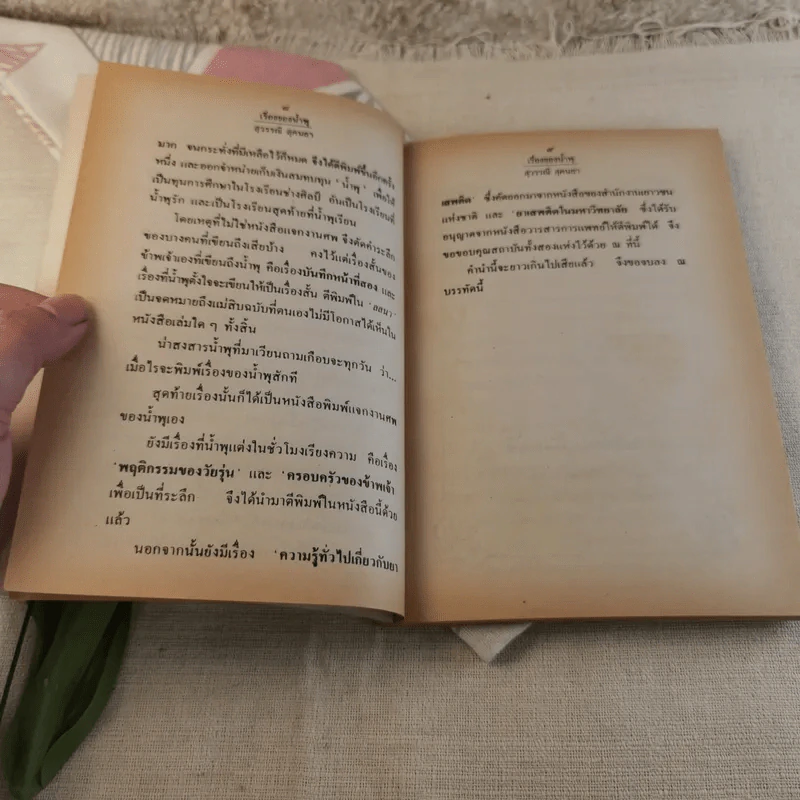 ๘
เรื่องของน้ำพุ
สุวรรณี สุคนธา
มาก จนกระทั่งที่มีเหลือไว้ก็หมด จึงได้ตีพิมพ์ขึ้นอีกครั้ง
หนึ่ง และออกจำหน่ายเก็บเงินสมทบทุน 'น้ำพุ' เพื่อให้
เป็นทุนการศึกษาในโรงเรียนช่างศิลป์ อันเป็นโรงเรียนที่
น้ำพุรัก และเป็นโรงเรียนสุดท้ายที่น้ำพุเรียน
โดยเหตุที่ไม่ใช่หนังสือแจกงานศพ จึงตัดคำระลึก
ของบางคนที่เขียนถึงเสียบ้าง คงไว้แต่เรื่องสั้นของ
ข้าพเจ้าเองที่เขียนถึงน้ำพุ คือเรื่องบันทึกหน้าที่สอง และ
เรื่องที่น้ำพุตั้งใจจะเขียนให้เป็นเรื่องสั้น ตีพิมพ์ใน 'ลลนา'
เป็นจดหมายถึงแม่สิบฉบับที่ตนเองไม่มีโอกาสได้เห็นใน
หนังสือเล่มใด ๆ ทั้งสิ้น
น่าสงสารน้ำพุที่มาเวียนถามเกือบจะทุกวัน ว่า...
เมื่อไรจะพิมพ์เรื่องของน้ำพุสักที
สุดท้ายเรื่องนั้นก็ได้เป็นหนังสือพิมพ์แจกงานศพ
ของน้ำพุเอง
ยังมีเรื่องที่น้ำพุแต่งในชั่วโมงเรียงความ คือเรื่อง
'พฤติกรรมของวัยรุ่น' และ 'ครอบครัวของข้าพเจ้า
เพื่อเป็นที่ระลึก จึงได้นำมาตีพิมพ์ในหนังสือนี้ด้วย
แล้ว
นอกจากนั้นยังมีเรื่อง 'ความรู้ทั่วไปเกี่ยวกับยา
เรื่องของน้ำพุ
สุวรรณี สุคนธา
เสพติด' ซึ่งคัดออกมาจากหนังสือของสำนักงานเยาวชน
แห่งชาติ และ 'ยาเสพติดในมหาวิทยาลัย ซึ่งได้รับ
อนุญาตจากหนังสือวารสารการแพทย์ให้ตีพิมพ์ได้ จึง
ขอขอบคุณสถาบันทั้งสองแห่งไว้ด้วย ณ ที่นี้
คำนำนี้จะยาวเกินไปเสียแล้ว จึงขอจบลง ณ
บรรทัดนี้